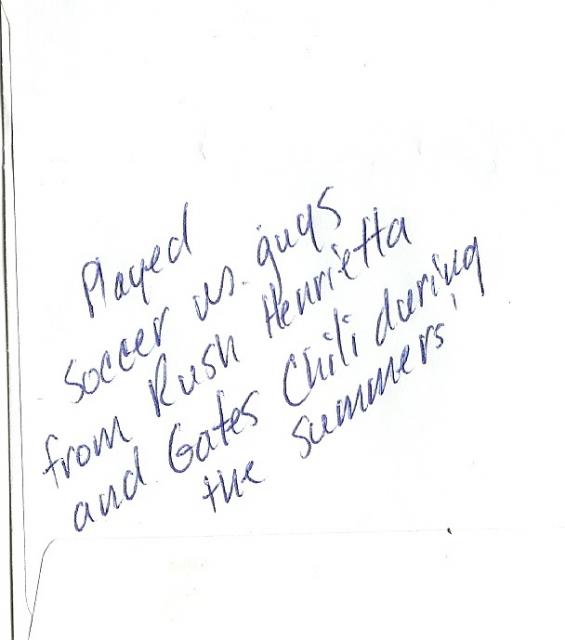 Played
soccer vs. guys
from Rush Henrietta
and Gates Chili during
the summers!